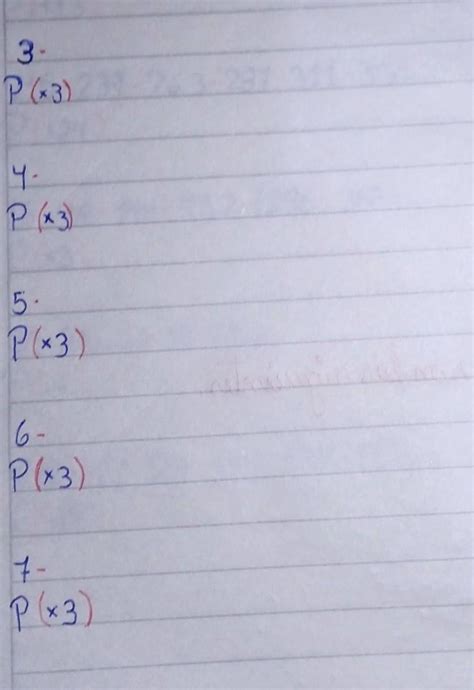 3-
P(×3)
4-
P(×3)
5-
P(×3)
6-
P(×3)
7-
P(×3)